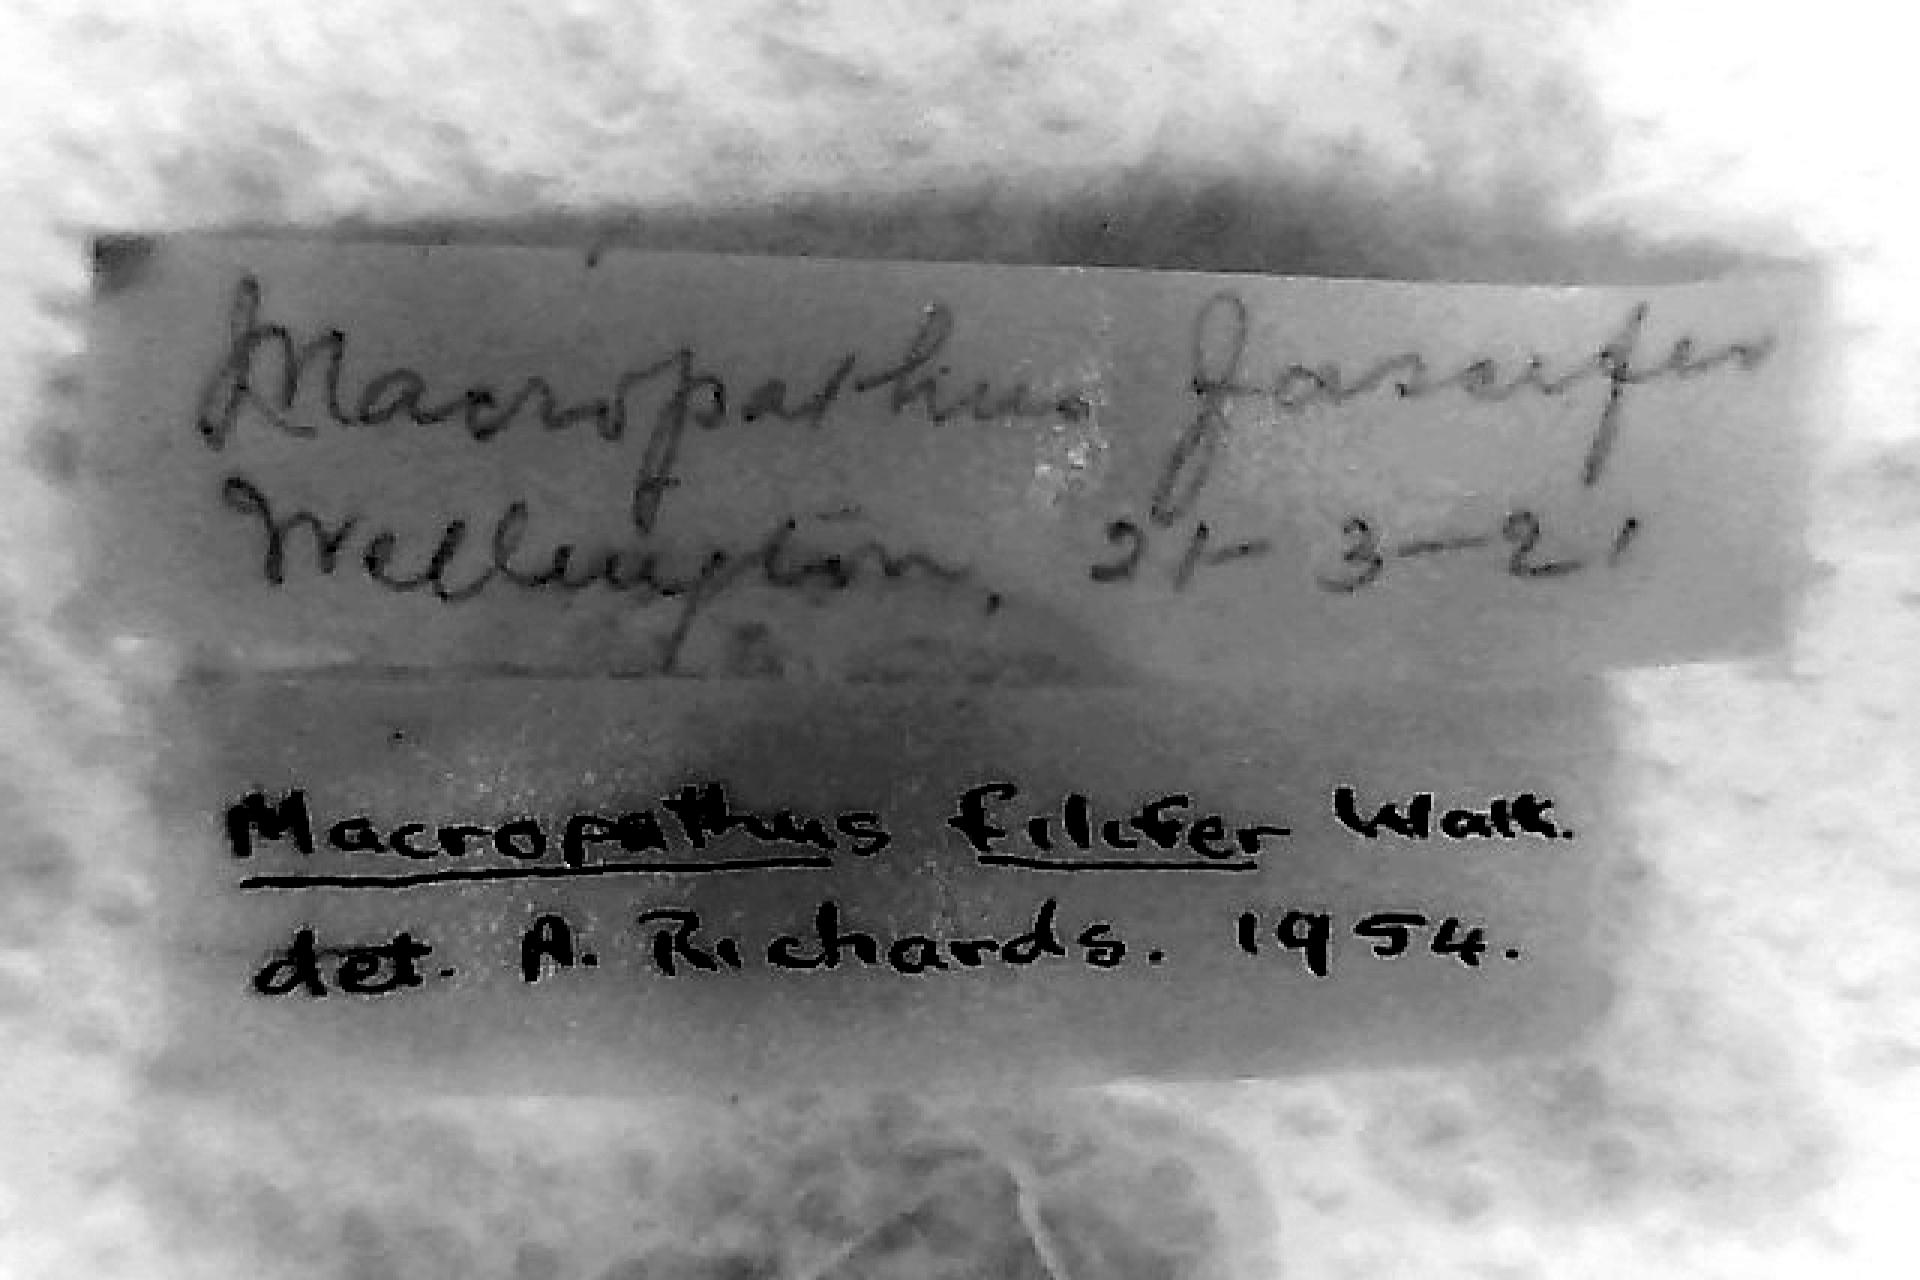 Macropathus fascifer
Wellington, 21-3-21
Macropathus filifer Walk.
det. A. Richards. 1954.